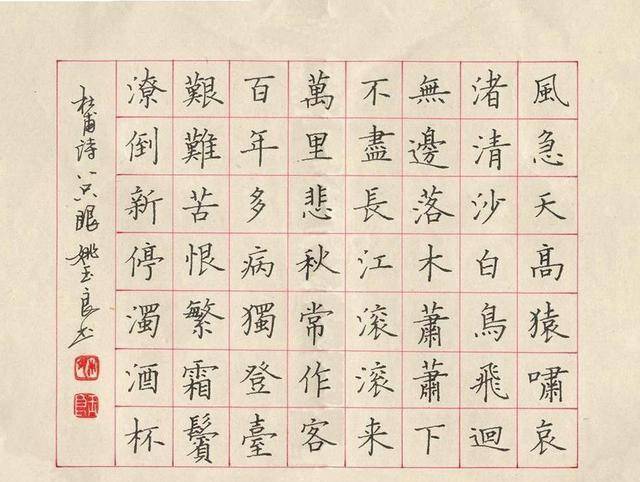 風急天高猿嘯哀
渚清沙白鳥飛迴
無邊落木蕭蕭下
不盡長江滾滾来
萬里悲秋常作客
百年多病獨登臺
艱難苦恨繁霜鬢
潦倒新停濁酒杯
杜甫詩 眼 姚玉良书